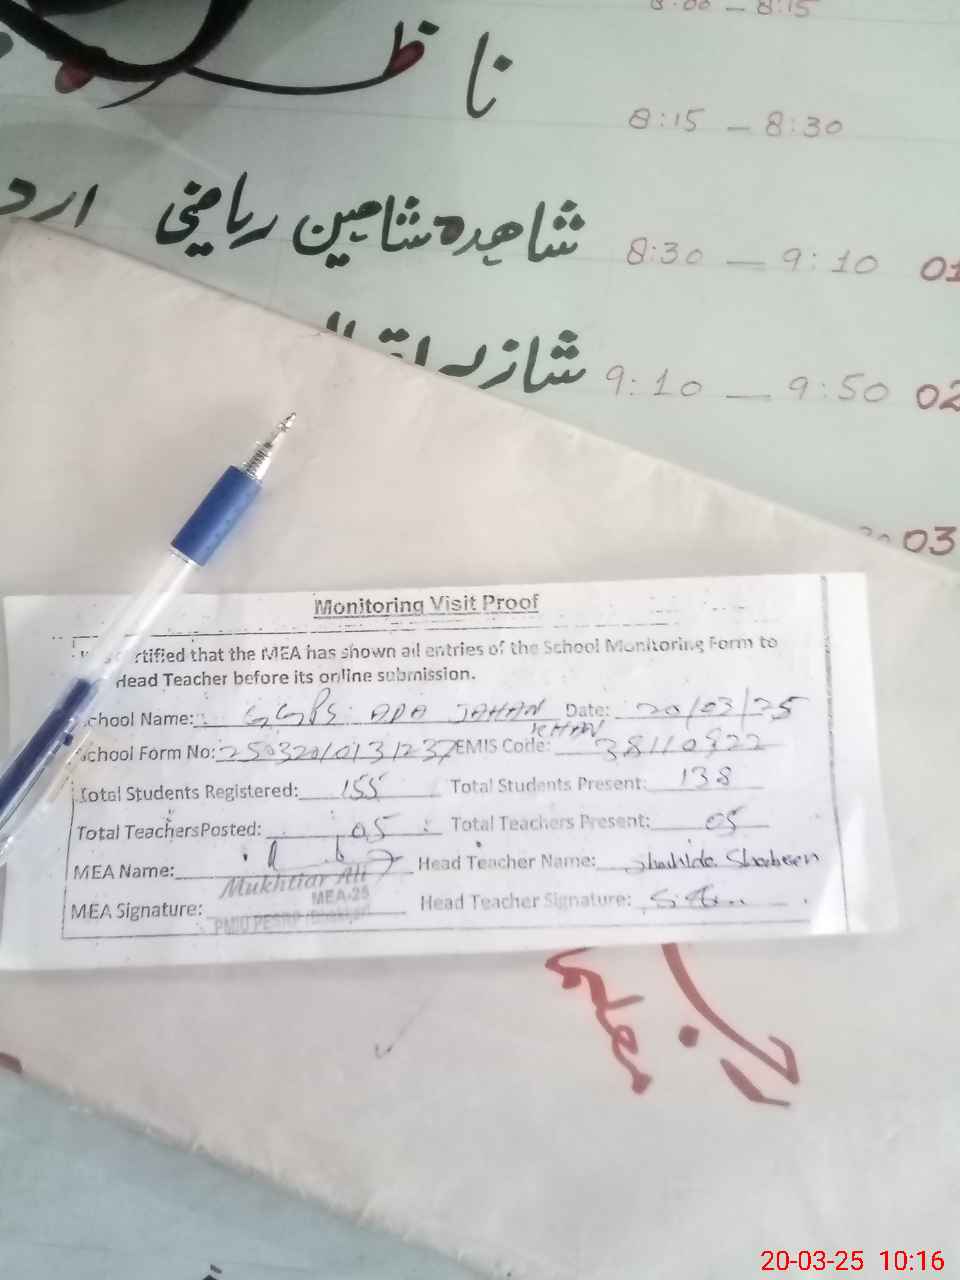 8:00 — 8:15
ناظ
8:15 — 8:30
شاہدہ شاہین ریاضی ارد
8:30 — 9:10 01
شازیہ اقبال
9:10 — 9:50 02
03
Monitoring Visit Proof
rtified that the MEA has shown all entries of the School Monitoring Form to
Head Teacher before its online submission.
School Name: GGPS ADA JAHAN KHAN Date: 20/03/25
School Form No: 25032010131237 EMIS Code: 38110922
Total Students Registered: 155 Total Students Present: 138
Total Teachers Posted: 05 Total Teachers Present: 05
MEA Name: Head Teacher Name: Shahida Shaheen
Mukhtiar Ali
MEA-25
MEA Signature: Head Teacher Signature:
PMIU PESRP (Bhakkar)
20-03-25 10:16